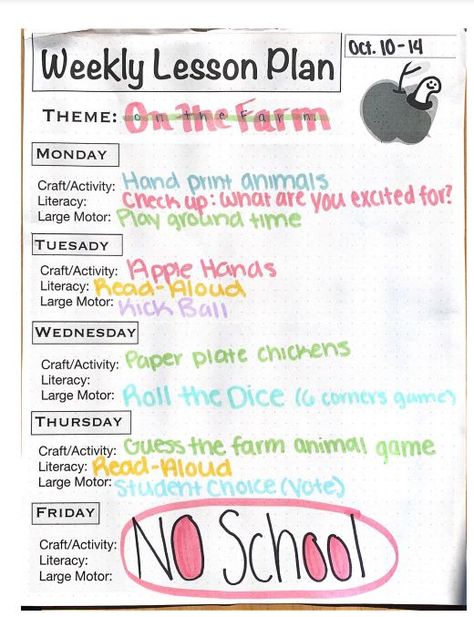 Weekly Lesson Plan
Oct. 10-14
THEME: On the Farm
MONDAY
Craft/Activity: Hand print animals
Literacy: Check up: What are you excited for?
Large Motor: Play ground time
TUESADY
Craft/Activity: Apple Hands
Literacy: Read-Aloud
Large Motor: Kick Ball
WEDNESDAY
Craft/Activity: Paper plate chickens
Literacy:
Large Motor: Roll the Dice (6 corners game)
THURSDAY
Craft/Activity: Guess the farm animal game
Literacy: Read-Aloud
Large Motor: Student Choice (Vote)
FRIDAY
NO School
Craft/Activity:
Literacy:
Large Motor: